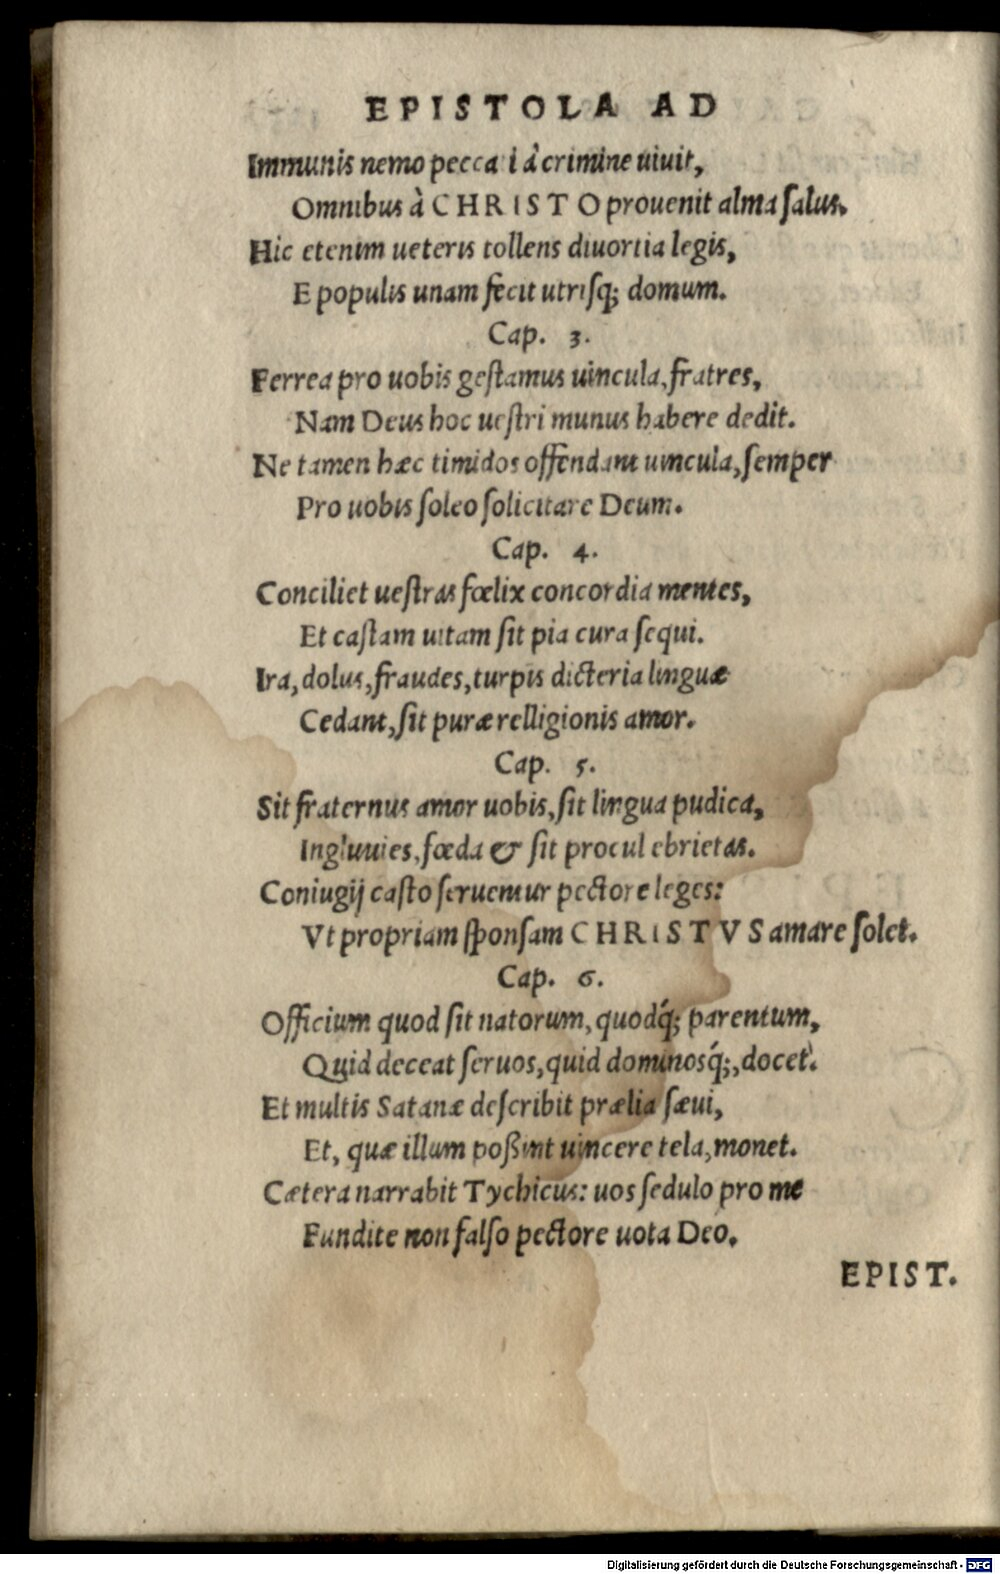 EPISTOLA AD
Immunis nemo peccati à crimine uiuit,
Omnibus à CHRISTO prouenit alma ſalus.
Hic etenim ueteris tollens diuortia legis,
E populis unam fecit utriſq; domum.
Cap. 3.
Ferrea pro uobis geſtamus uincula, fratres,
Nam Deus hoc ueſtri munus habere dedit.
Ne tamen hæc timidos offendant uincula, ſemper
Pro uobis ſoleo ſolicitare Deum.
Cap. 4.
Conciliet ueſtras fœlix concordia mentes,
Et caſtam uitam ſit pia cura ſequi.
Ira, dolus, fraudes, turpis dicteria linguæ
Cedant, ſit puræ relligionis amor.
Cap. 5.
Sit fraternus amor uobis, ſit lingua pudica,
Ingluuies, fœda & ſit procul ebrietas.
Coniugij caſto ſeruentur pectore leges:
Vt propriam ſponſam CHRISTVS amare ſolet.
Cap. 6.
Officium quod ſit natorum, quodq́; parentum,
Quid deceat ſeruos, quid dominosq́;, docet.
Et multis Satanæ deſcribit prælia ſæui,
Et, quæ illum poßint uincere tela, monet.
Cætera narrabit Tychicus: uos ſedulo pro me
Fundite non falſo pectore uota Deo.
EPIST.
Digitalisierung gefördert durch die Deutsche Forschungsgemeinschaft - DFG